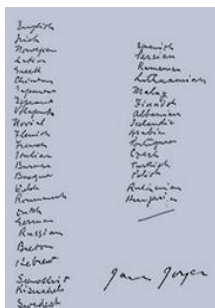 English
Irish
Norwegian
Latin
Greek
Chinese
Japanese
Esperanto
Volapuk
Novial
Flemish
French
Italian
Burmese
Basque
Welsh
Roumansh
Dutch
German
Russian
Breton
Hebrew
Sanskrit
Kiswahili
Swedish
Spanish
Persian
Rumanian
Lithuanian
Malay
Finnish
Albanian
Icelandic
Arabic
Portuguese
Czech
Turkish
Polish
Ruthenian
Hungarian
James Joyce